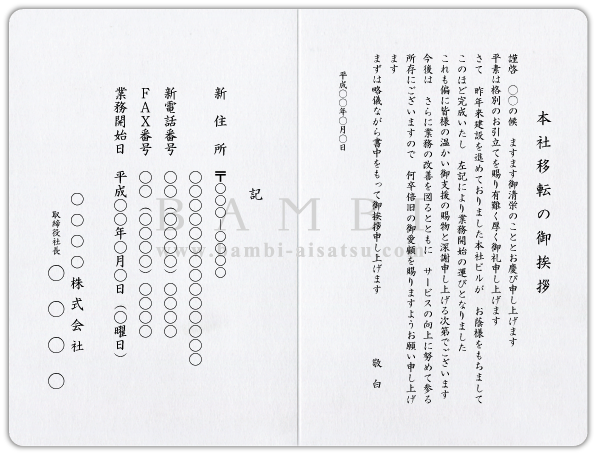 本社移転の御挨拶
謹啓　〇〇の候　ますます御清栄のこととお慶び申し上げます
平素は格別のお引立てを賜り有難く厚く御礼申し上げます
さて　昨年来建設を進めておりました本社ビルが　お蔭様をもちまして
このほど完成いたし　左記により業務開始の運びとなりました
これも偏に皆様の温かい御支援の賜物と深謝申し上げる次第でございます
今後は　さらに業務の改善を図るとともに　サービスの向上に努めて参る
所存にございますので　何卒倍旧の御愛顧を賜りますようお願い申し上げ
ます
まずは略儀ながら書中をもって御挨拶申し上げます
敬白
平成〇〇年〇月〇日
記
新住所　〒〇〇〇-〇〇〇〇
〇〇〇〇〇〇〇〇〇〇〇〇
新電話番号　〇〇（〇〇〇〇）〇〇〇〇
ＦＡＸ番号　〇〇（〇〇〇〇）〇〇〇〇
業務開始日　平成〇〇年〇月〇日（〇曜日）
〇〇〇〇株式会社
取締役社長　〇〇〇〇
BAMBI
www.bambi-aisatsu.com